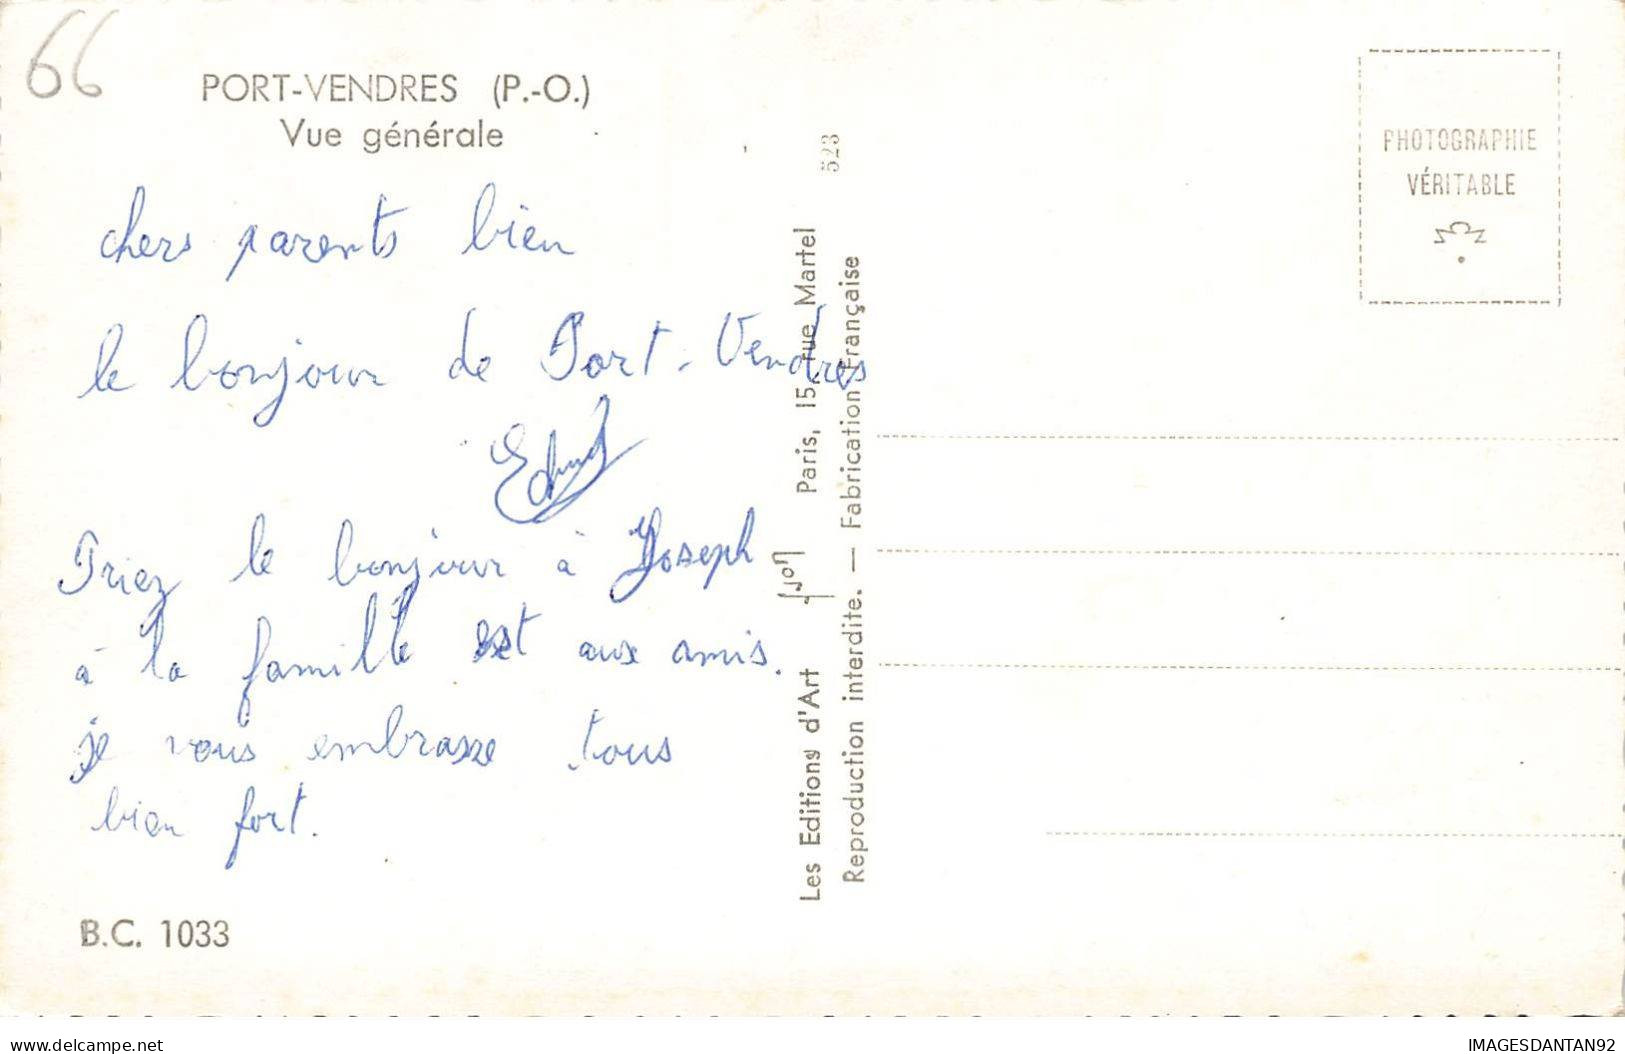 66
PORT-VENDRES (P.-O.)
Vue générale
chers parents bien
le bonjour de Port-Vendres
Priez le bonjour à Joseph
à la famille est aux amis.
je vous embrasse tous
bien fort.
B.C. 1033
Les Editions d'Art Yvon Paris, 15, rue Martel
Reproduction interdite. — Fabrication Française
523
PHOTOGRAPHIE
VÉRITABLE
www.delcampe.net
IMAGESDANTAN92